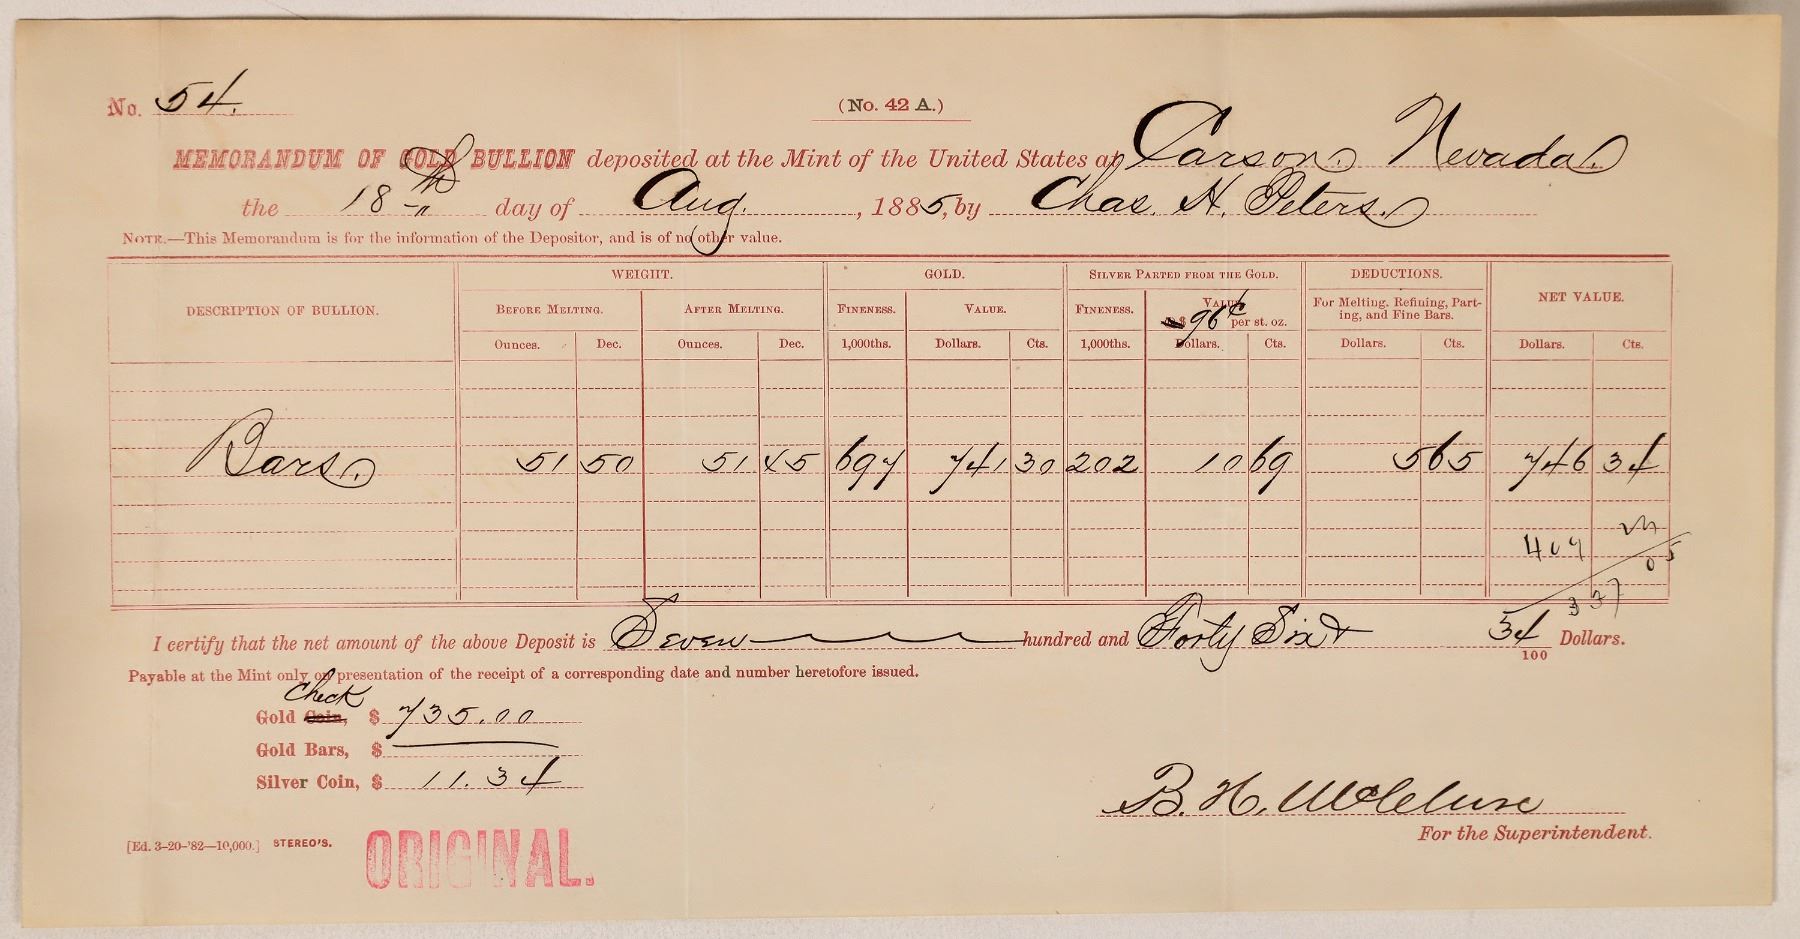 No. 54.
(No. 42 A.)
MEMORANDUM OF GOLD BULLION deposited at the Mint of the United States at Carson. Nevada.
the 18th day of Aug. , 1885, by Chas. H. Peters.
NOTE.—This Memorandum is for the information of the Depositor, and is of no other value.
DESCRIPTION OF BULLION. WEIGHT. GOLD. SILVER PARTED FROM THE GOLD. DEDUCTIONS. NET VALUE.
BEFORE MELTING. AFTER MELTING. FINENESS. VALUE. FINENESS. VALUE 96¢ per st. oz. For Melting, Refining, Parting, and Fine Bars.
Ounces. Dec. Ounces. Dec. 1,000ths. Dollars. Cts. 1,000ths. Dollars. Cts. Dollars. Cts. Dollars. Cts.
Bars. 51 50 51 45 697 741 30 202 10 69 5 65 746 34
409
05
337
I certify that the net amount of the above Deposit is Seven hundred and Forty Six 34/100 Dollars.
Payable at the Mint only on presentation of the receipt of a corresponding date and number heretofore issued.
Check
Gold Coin, $ 735.00
Gold Bars, $
Silver Coin, $ 11.34
B. H.
For the Superintendent.
[Ed. 3–20–'82—10,000.] STEREO'S.
ORIGINAL.